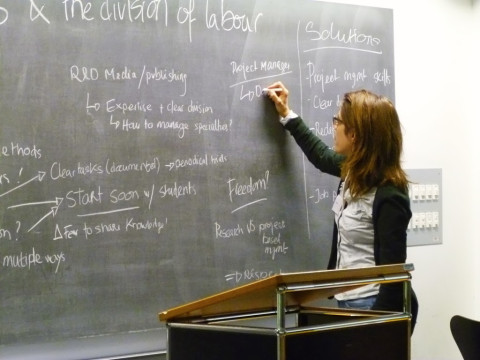 & the division of labour
R&D Media/publishing
↳ Expertise + clear division
↳ How to manage specialism?
ethods
Clear tasks (documented) → periodical
START SOON w/ students
to share knowledge
multiple ways
Project Manager
↳ D
Freedom?
Research vs project
based
mgmt
Solutions
- Project mgmt skills
- Clear